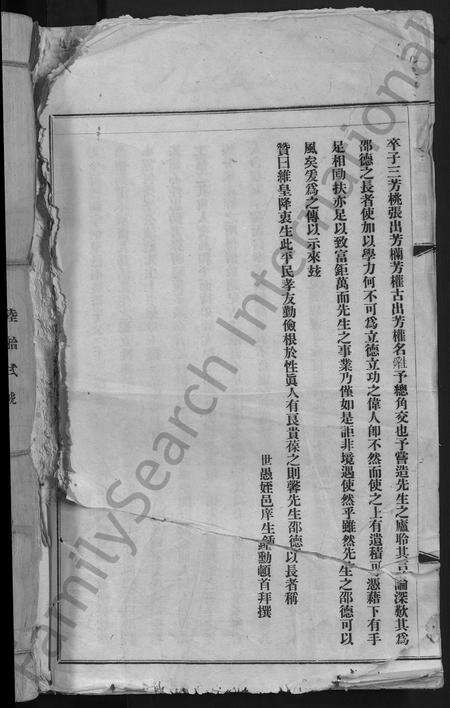 卒子三芳桃張出芳蘭芳權古出芳權名彪予總角交也予嘗造先生之廬聆其言論深歎其爲
邵德之長者使加以學力何不可爲立德立功之偉人卽不然而使之上有遺積可憑藉下有手
足相助扶亦足以致富鉅萬而先生之事業乃僅如是詎非境遇使然乎雖然先生之邵德可以
風矣爰爲之傳以示來玆
贊曰維皇降衷生此平民孝友勤儉根於性眞人有良貴葆之則馨先生邵德以長者稱
世愚姪邑庠生鍾勳頓首拜撰
FamilySearch International